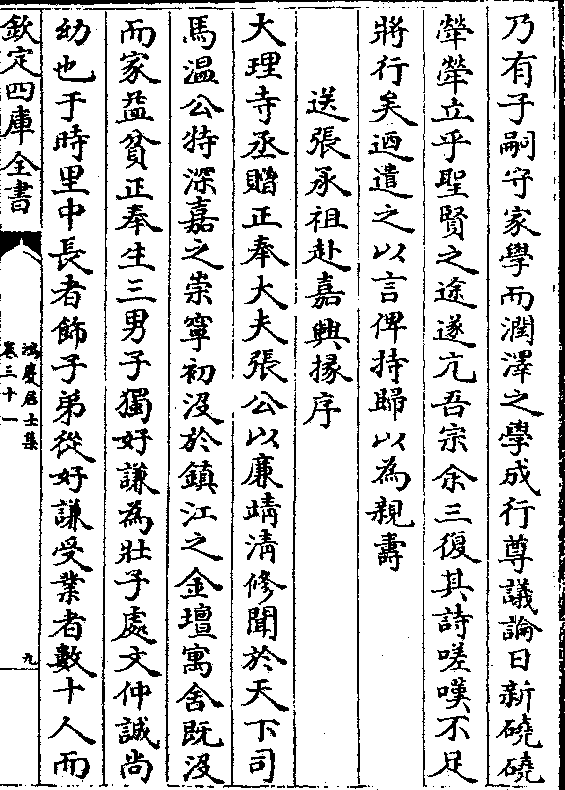 乃有子嗣守家學而潤澤之學成行尊議論日新磽磽
犖犖立乎聖賢之途遂亢吾宗余三復其詩嗟嘆不足
將行矣迺遣之以言俾持歸以為親壽
送張承祖赴嘉興掾序
大理寺丞贈正奉大夫張公以廉靖清修聞於天下司
馬温公特深嘉之崇寧初沒於鎮江之金壇寓舍既沒
而家益貧正奉生三男子獨好謙為壯子處文仲誠尚
幼也于時里中長者飭子弟從好謙受業者數十人而
欽定四庫全書
鴻慶居士集
卷三十一
九